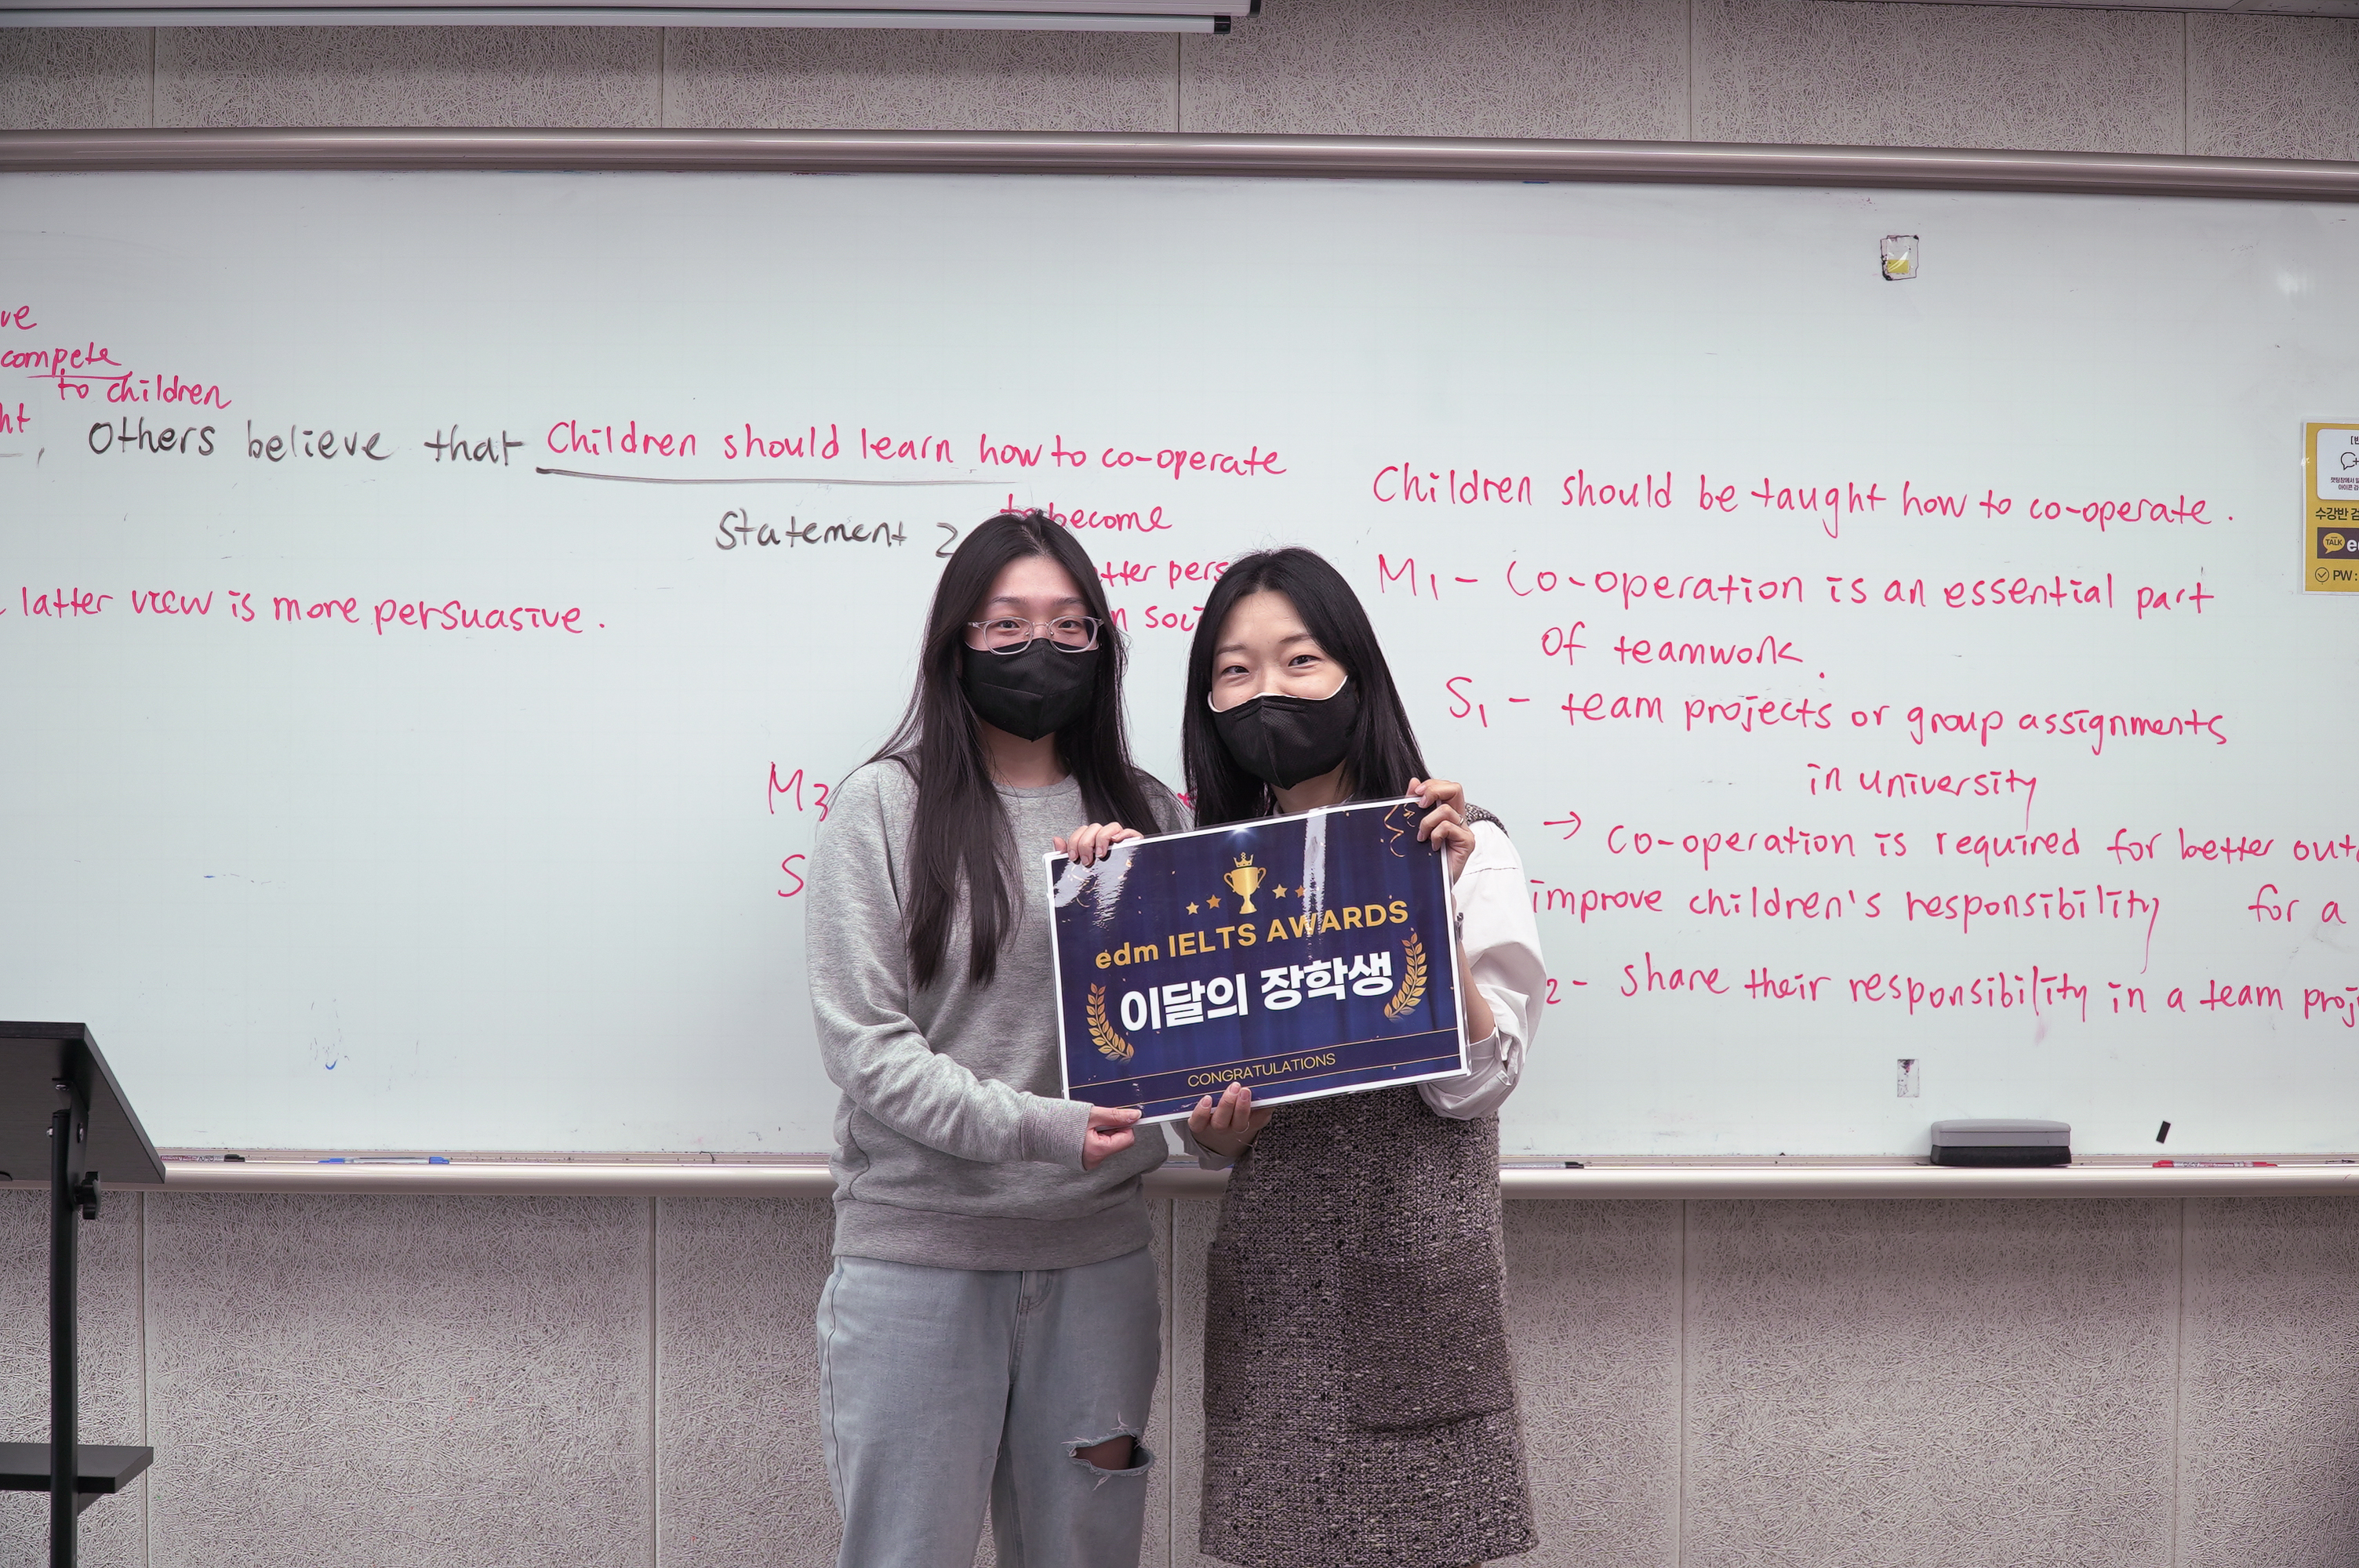 compete
to children
, Others believe that Children should learn how to co-operate
Statement 2
become
latter view is more persuasive.
M3
S
Children should be taught how to co-operate.
M1 - Co-operation is an essential part
of teamwork.
S1 - team projects or group assignments
in university
→ co-operation is required for better
improve children's responsibility for a
2 - share their responsibility in a team
edm IELTS AWARDS
이달의 장학생
CONGRATULATIONS
수강반
TALK
PW: